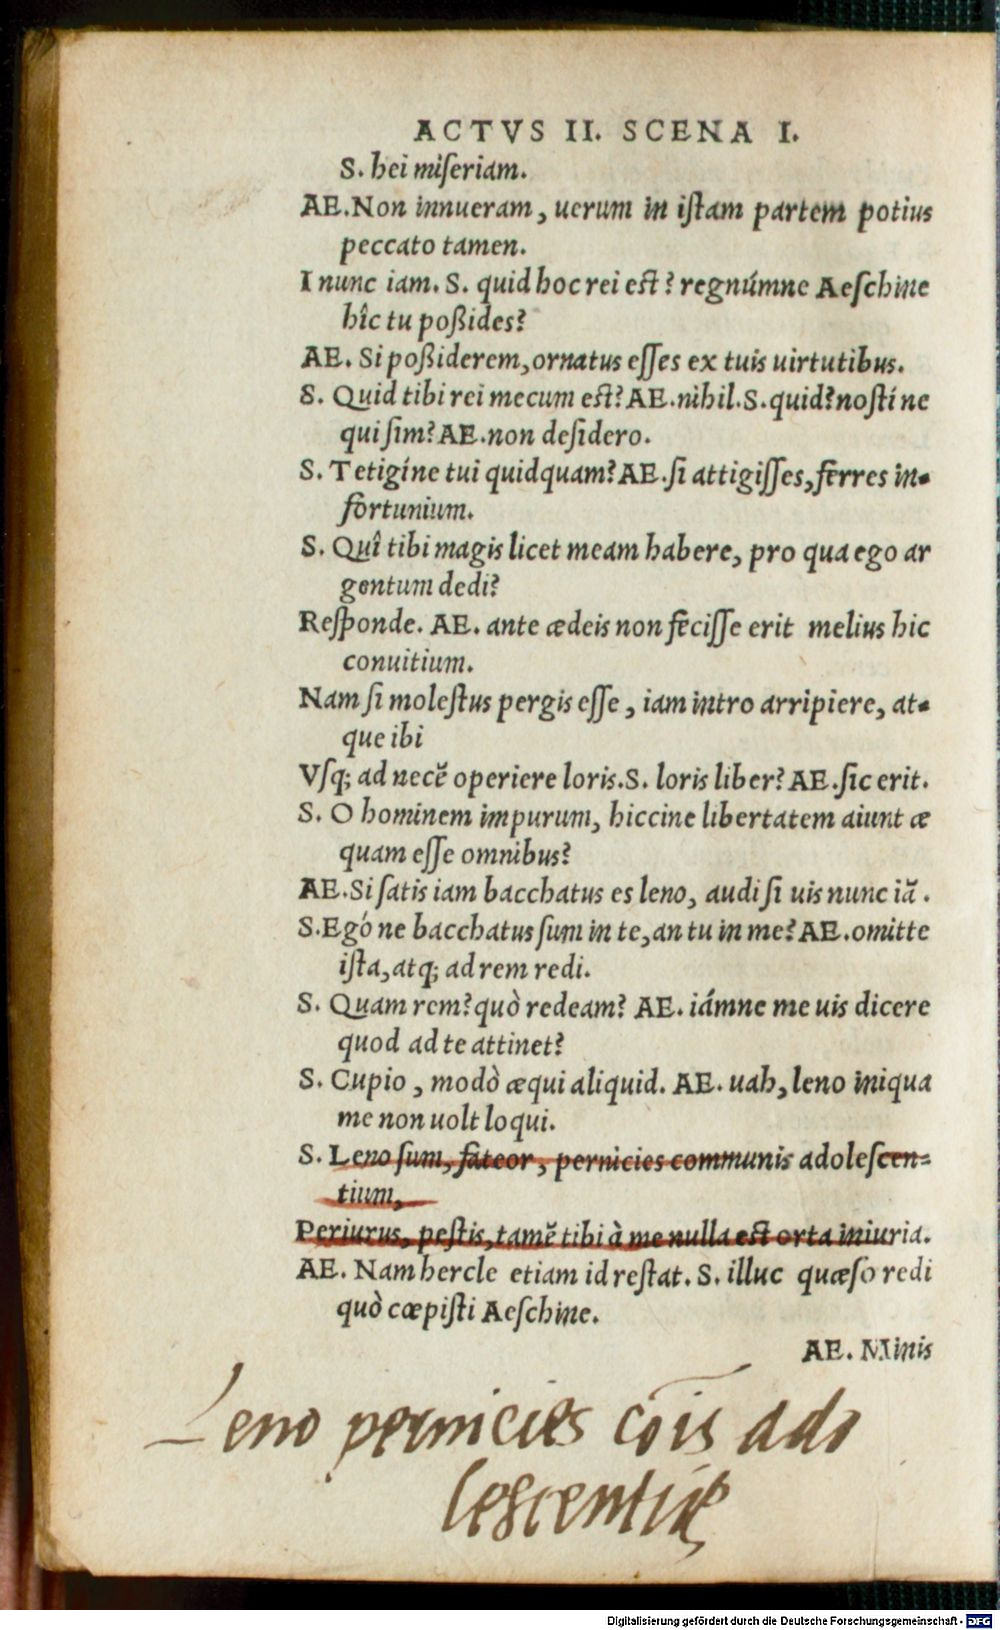 ACTVS II. SCENA I.
S. hei miſeriam.
AE.Non innueram, uerum in iſtam partem potius
peccato tamen.
I nunc iam. S. quid hoc rei eſt? regnúmne Aeſchine
hîc tu poßides?
AE. Si poßiderem, ornatus eſſes ex tuis uirtutibus.
S. Quid tibi rei mecum eſt? AE.nihil.S.quid? noſtí ne
qui ſim? AE.non deſidero.
S. Tetigíne tui quidquam? AE.ſi attigiſſes, ferres in-
fortunium.
S. Quî tibi magis licet meam habere, pro qua ego ar
gentum dedi?
Reſponde. AE. ante ædeis non feciſſe erit melius hic
conuitium.
Nam ſi moleſtus pergis eſſe, iam intro arripiere, at-
que ibi
Vſq; ad necē operiere loris.S. loris liber? AE.ſic erit.
S. O hominem impurum, hiccine libertatem aiunt æ
quam eſſe omnibus?
AE.Si ſatis iam bacchatus es leno, audi ſi uis nunc iā.
S.Egó ne bacchatus ſum in te, an tu in me? AE.omitte
iſta, atq; ad rem redi.
S. Quam rem? quò redeam? AE. iámne me uis dicere
quod ad te attinet?
S. Cupio, modò æqui aliquid. AE. uah, leno iniqua
me non uolt loqui.
S. Leno ſum, fateor, pernicies communis adoleſcen=
tium,
Periurus, peſtis, tamē tibi à me nulla eſt orta iniuria.
AE. Nam hercle etiam id reſtat. S. illuc quæſo redi
quò cœpiſti Aeſchine.
AE. Minis
Leno pernicies cōis ado
Digitalisierung gefördert durch die Deutsche Forschungsgemeinschaft - DFG